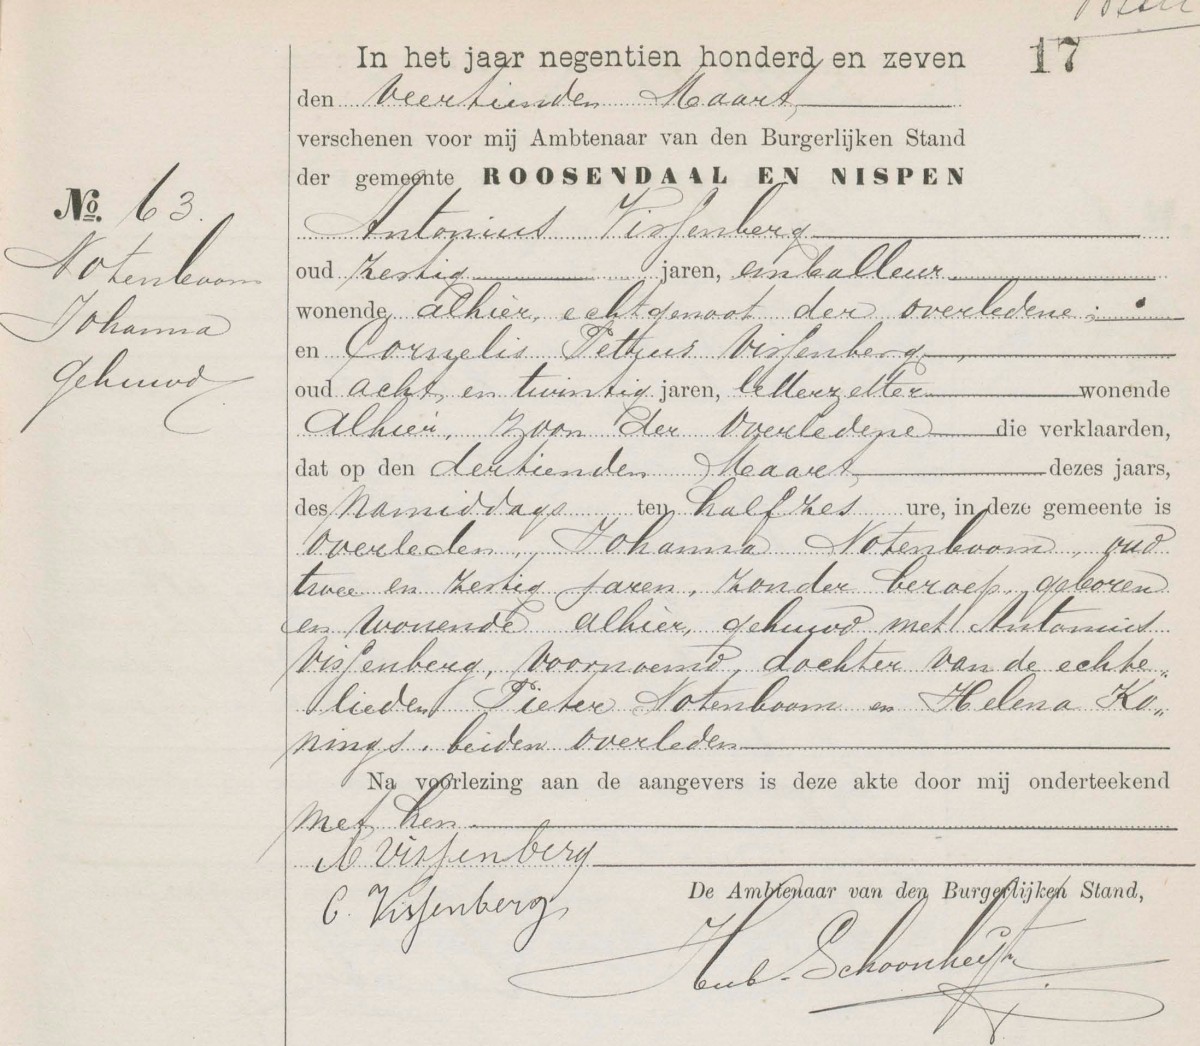 17
In het jaar negentien honderd en zeven
den veertienden Maart,
verschenen voor mij Ambtenaar van den Burgerlijken Stand
der gemeente ROOSENDAAL EN NISPEN
No. 63.
Notenboom
Johanna
gehuwd
Antonius Vissenberg
oud zestig jaren, emballeur
wonende alhier, echtgenoot der overledene;
en Cornelis Petrus Vissenberg,
oud acht en twintig jaren, letterzetter wonende
alhier, zoon der overledene die verklaarden,
dat op den dertienden Maart dezes jaars,
des namiddags ten half zes ure, in deze gemeente is
overleden, Johanna Notenboom, oud
twee en zestig jaren, zonder beroep, geboren
en wonende alhier, gehuwd met Antonius
Vissenberg, voornoemd, dochter van de echte„
lieden Pieter Notenboom en Helena Ko„
nings, beiden overleden
Na voorlezing aan de aangevers is deze akte door mij onderteekend
met hen
A Vissenberg
C. Vissenberg
De Ambtenaar van den Burgerlijken Stand,
Hub. Schoonheyt